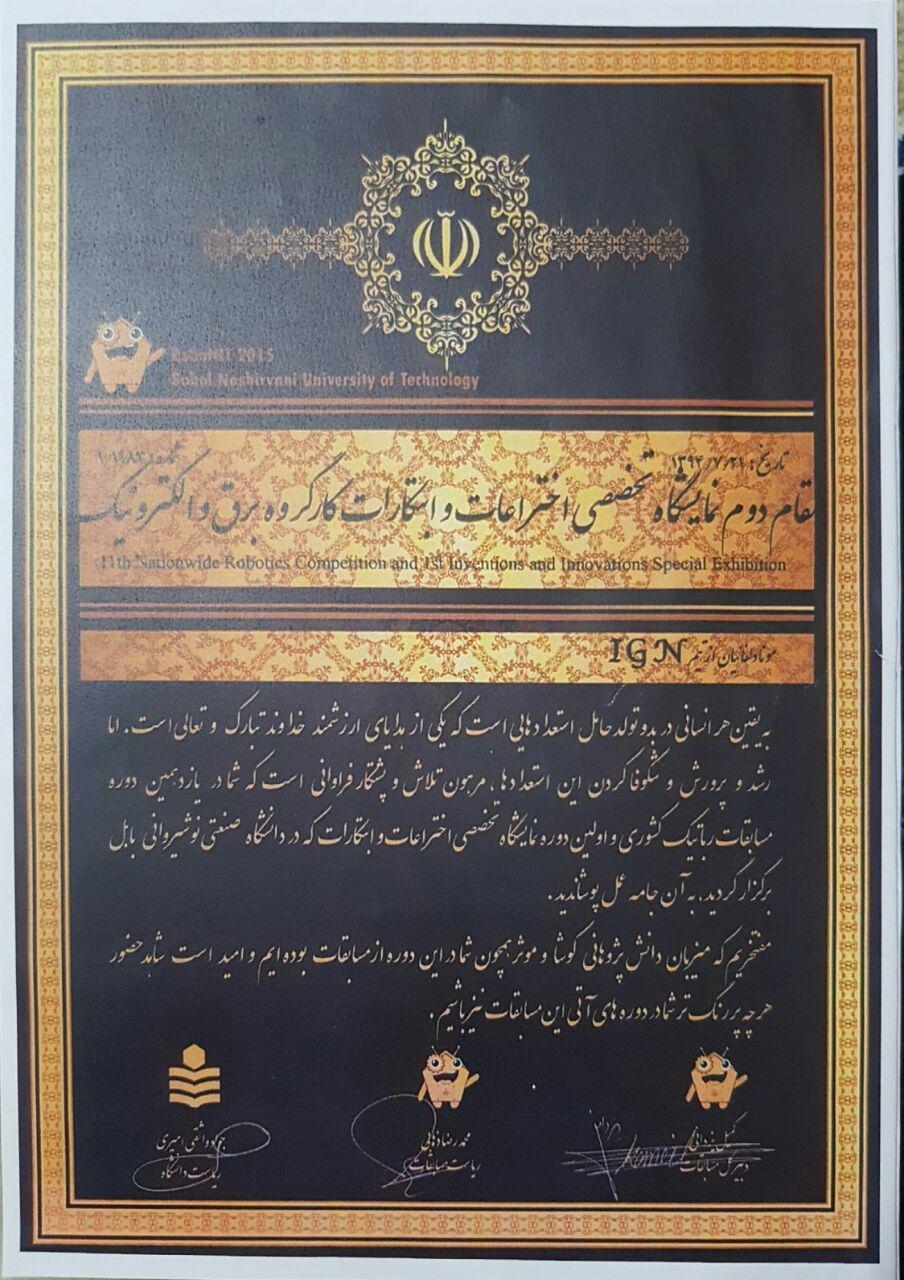 RoboNIT 2015
Babol Noshirvani University of Technology
تاریخ: ۱۳۹۴/۷/۲۱
مقام دوم نمایشگاه تخصصی اختراعات و ابتکارات کارگروه برق و الکترونیک
11th Nationwide Robotics Competition and 1st Inventions and Innovations Special Exhibition
از تیم IGN
به یقین هر انسانی در بدو تولد حامل استعدادهایی است که یکی از هدایای ارزشمند خداوند تبارک و تعالی است. اما
رشد و پرورش و شکوفا کردن این استعدادها، مرهون تلاش و پشتکار فراوانی است که شما در یازدهمین دوره
مسابقات رباتیک کشوری و اولین دوره نمایشگاه تخصصی اختراعات و ابتکارات که در دانشگاه صنعتی نوشیروانی بابل
برگزار گردید، به آن جامه عمل پوشاندید.
مفتخریم که میزبان دانش پژوهانی کوشا و موثر همچون شما در این دوره از مسابقات بوده ایم و امید است شاهد حضور
هر چه پررنگ تر شما در دوره های آتی این مسابقات نیز باشیم.
کمیل یزدانی
دبیر کل مسابقات
محمدرضا ذهابی
ریاست مسابقات
جواد واثقی امیری
ریاست دانشگاه